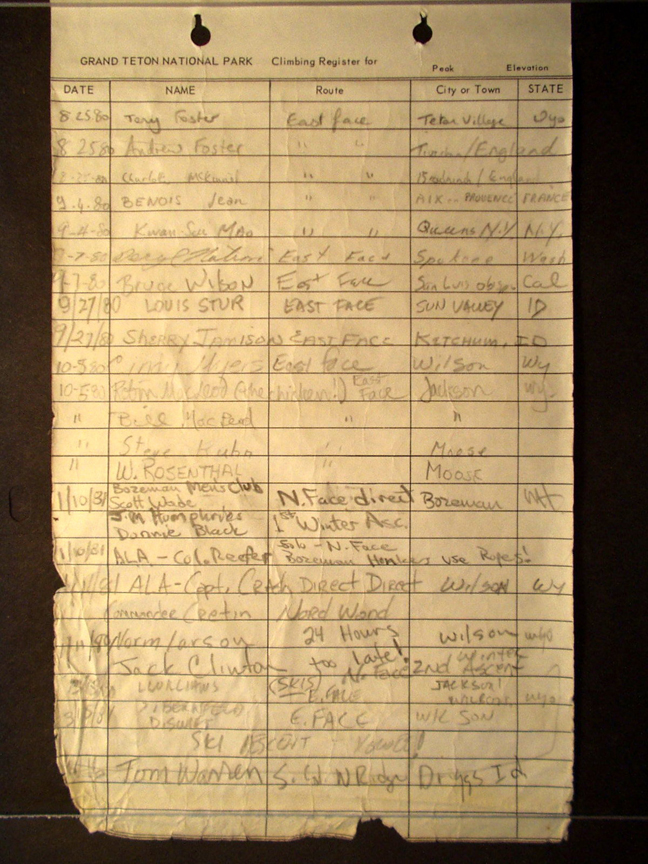 GRAND TETON NATIONAL PARK Climbing Register for Peak Elevation
DATE NAME Route City or Town STATE
8.25.80 Tony Foster East face Teton Village Wyo
8 25 80 Andrew Foster " " /England
" " / England
9.4.80 BENOIS Jean " " AIX.. PROVENCE FRANCE
9-4-80 Kwan-Sun Mao " " Queens N.Y. N.Y.
9-7-80 East Face Spokane Wash
9-7-80 Bruce Wilson East Face San Luis obispo Cal
9/27/80 LOUIS STUR EAST FACE SUN VALLEY ID
9/27/80 SHERRY JAMISON EAST FACE KETCHUM, ID
10-5-80 Myers East face Wilson Wy
10-5-80 MacLeod (the chicken!) East Face Jackson wy.
" Bill MacLeod " "
" Steve Kuhn " " Moose
" W. ROSENTHAL MOOSE
1/10/81 Bozeman Mens Club N. Face direct Bozeman MT
Scott Wade
Jim Humphries 1st Winter Asc.
Donnie Black
1/10/81 ALA - Col. Reefer Solo - N. Face
Bozeman Honkers use Ropes!
ALA - Capt. Crash Direct Direct Wilson WY
Commander Cretin Nord Wand
Norm Larson 24 Hours Wilson wyo
Jack Clinton too late! N. Face 2nd winter Ascent
WILLIAMS (SKIS) E. FACE JACKSON! wyo
E. FACE WILSON
SKI ASCENT
Tom Warren S. Col N Ridge Driggs Id